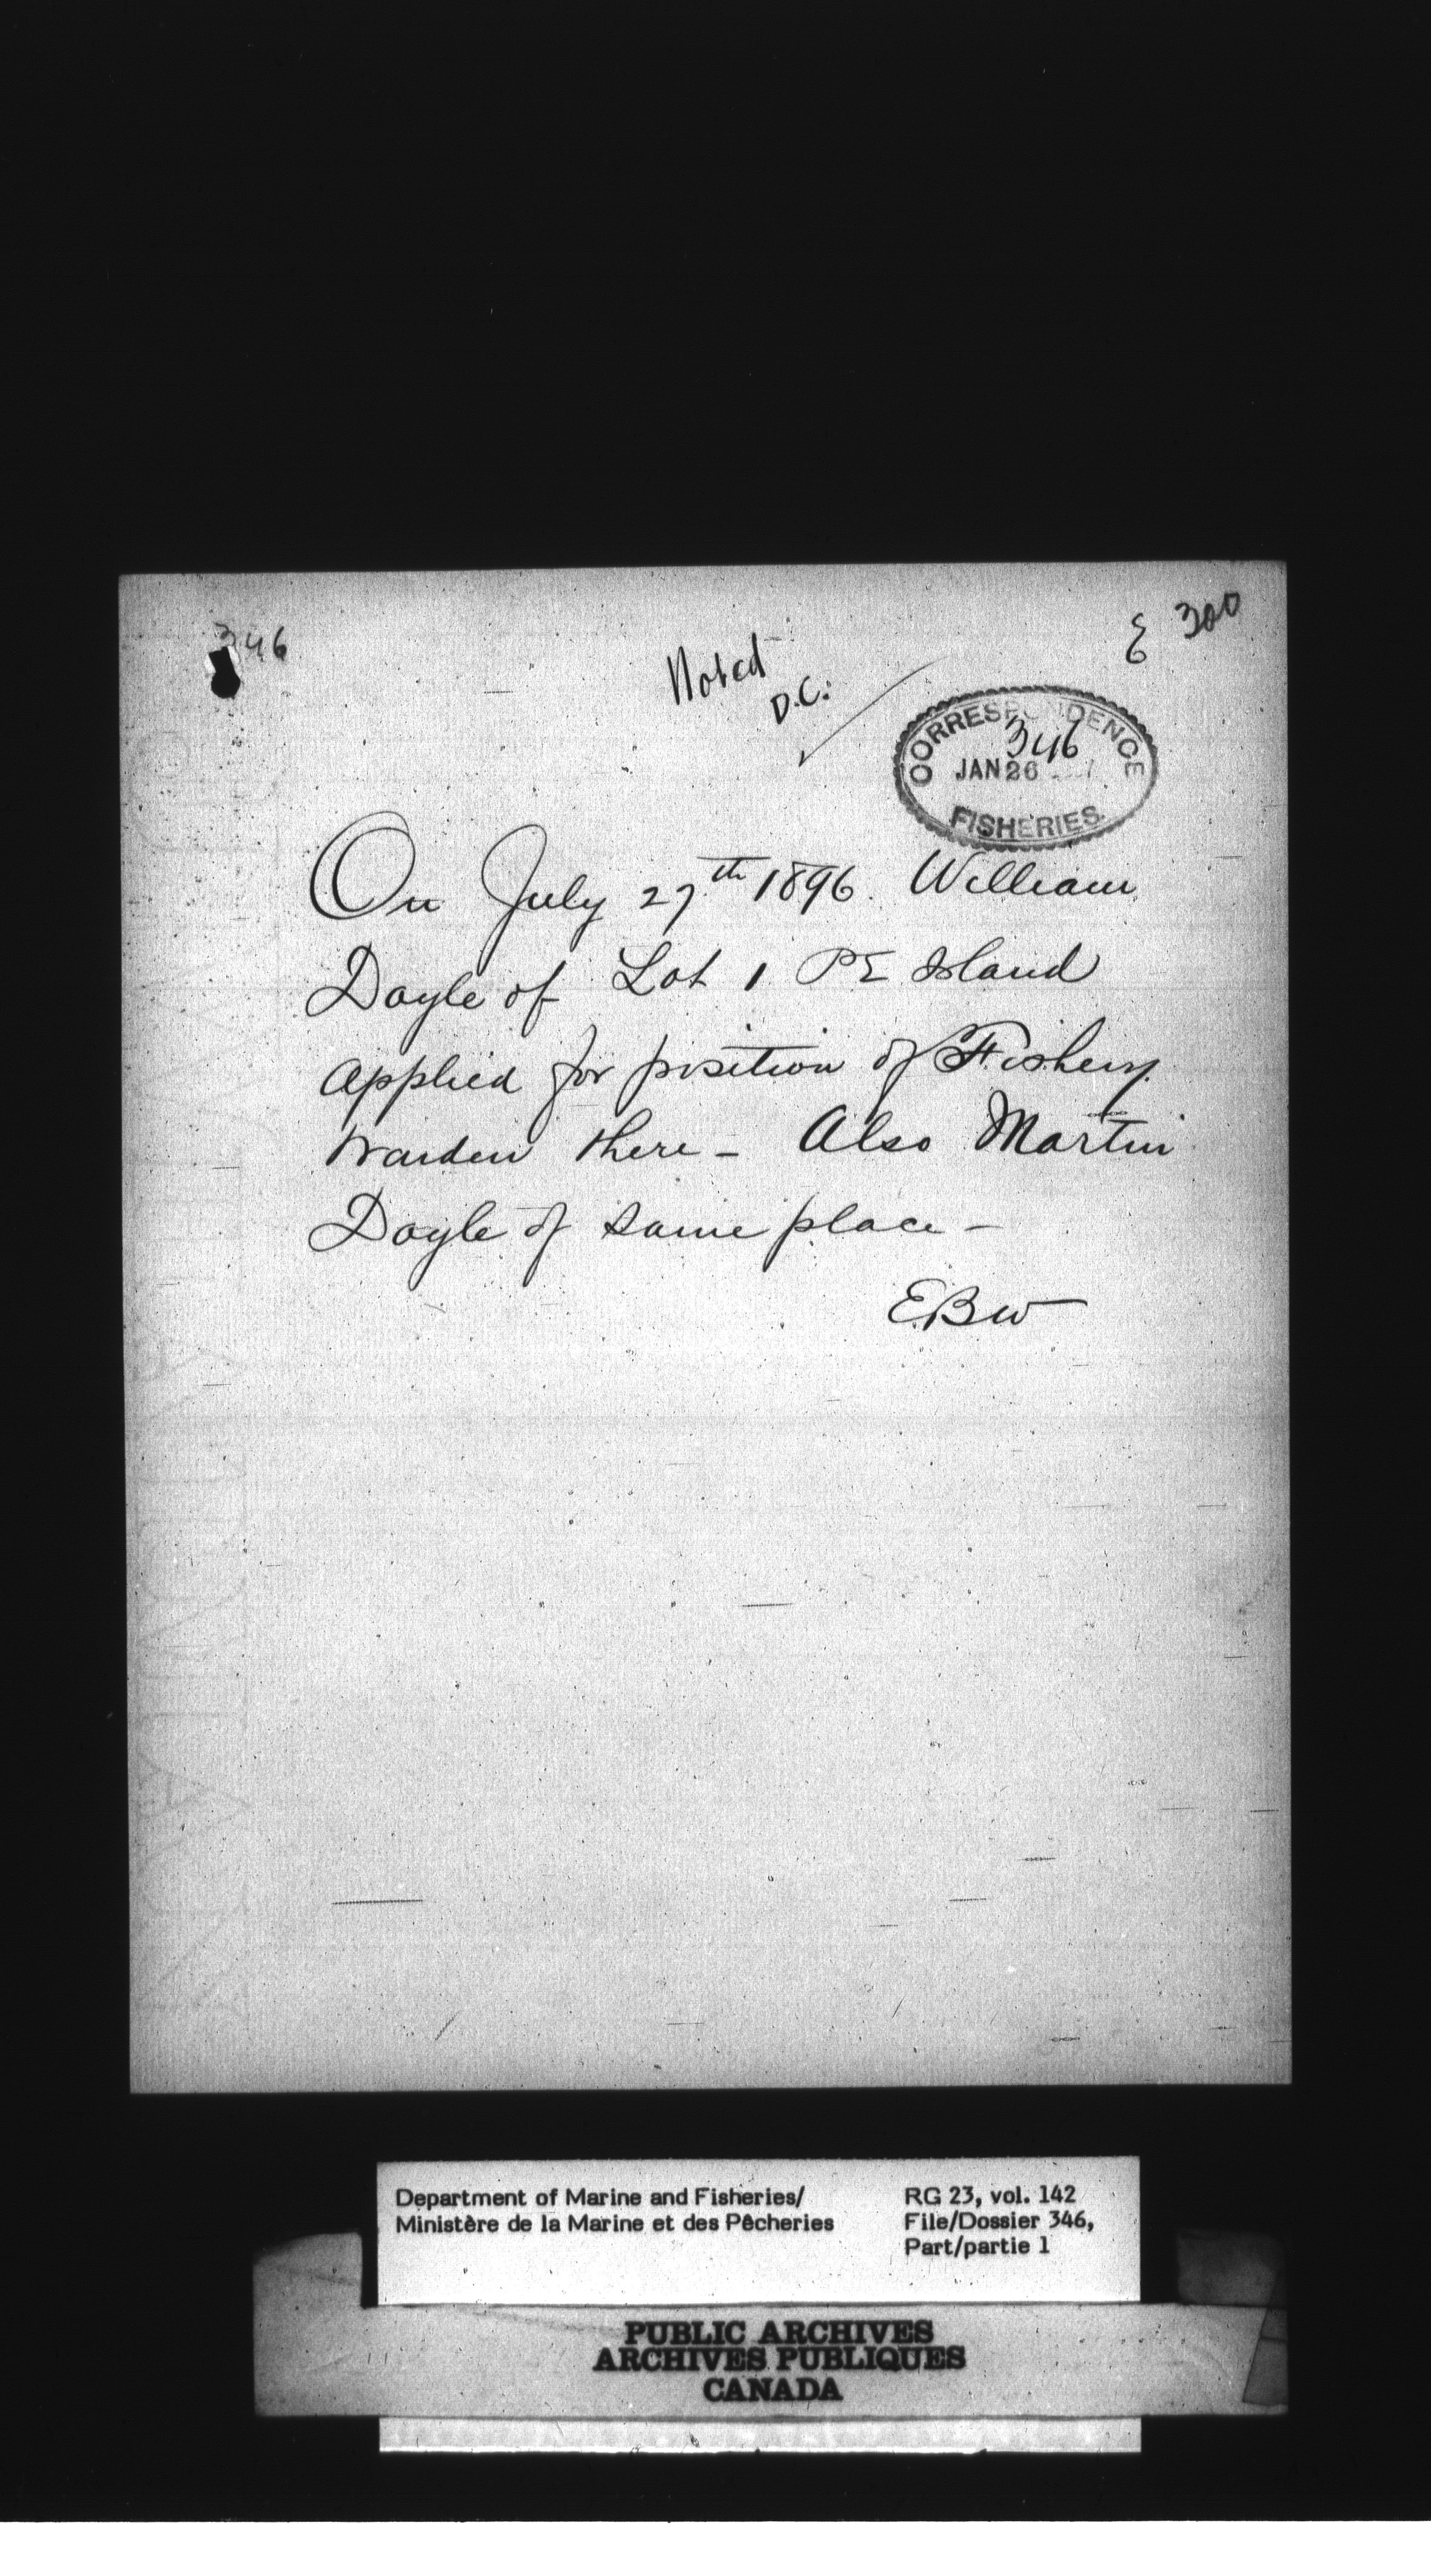 346
E 300
Noted
D.C.
CORRESPONDENCE
346
JAN 26
FISHERIES
On July 27th 1896. William
Doyle of Lot 1 PE Island
applied for position of Fishery
Warden there - Also Martin
Doyle of same place -
E.B.W
Department of Marine and Fisheries/
Ministère de la Marine et des Pêcheries
RG 23, vol. 142
File/Dossier 346,
Part/partie 1
PUBLIC ARCHIVES
ARCHIVES PUBLIQUES
CANADA